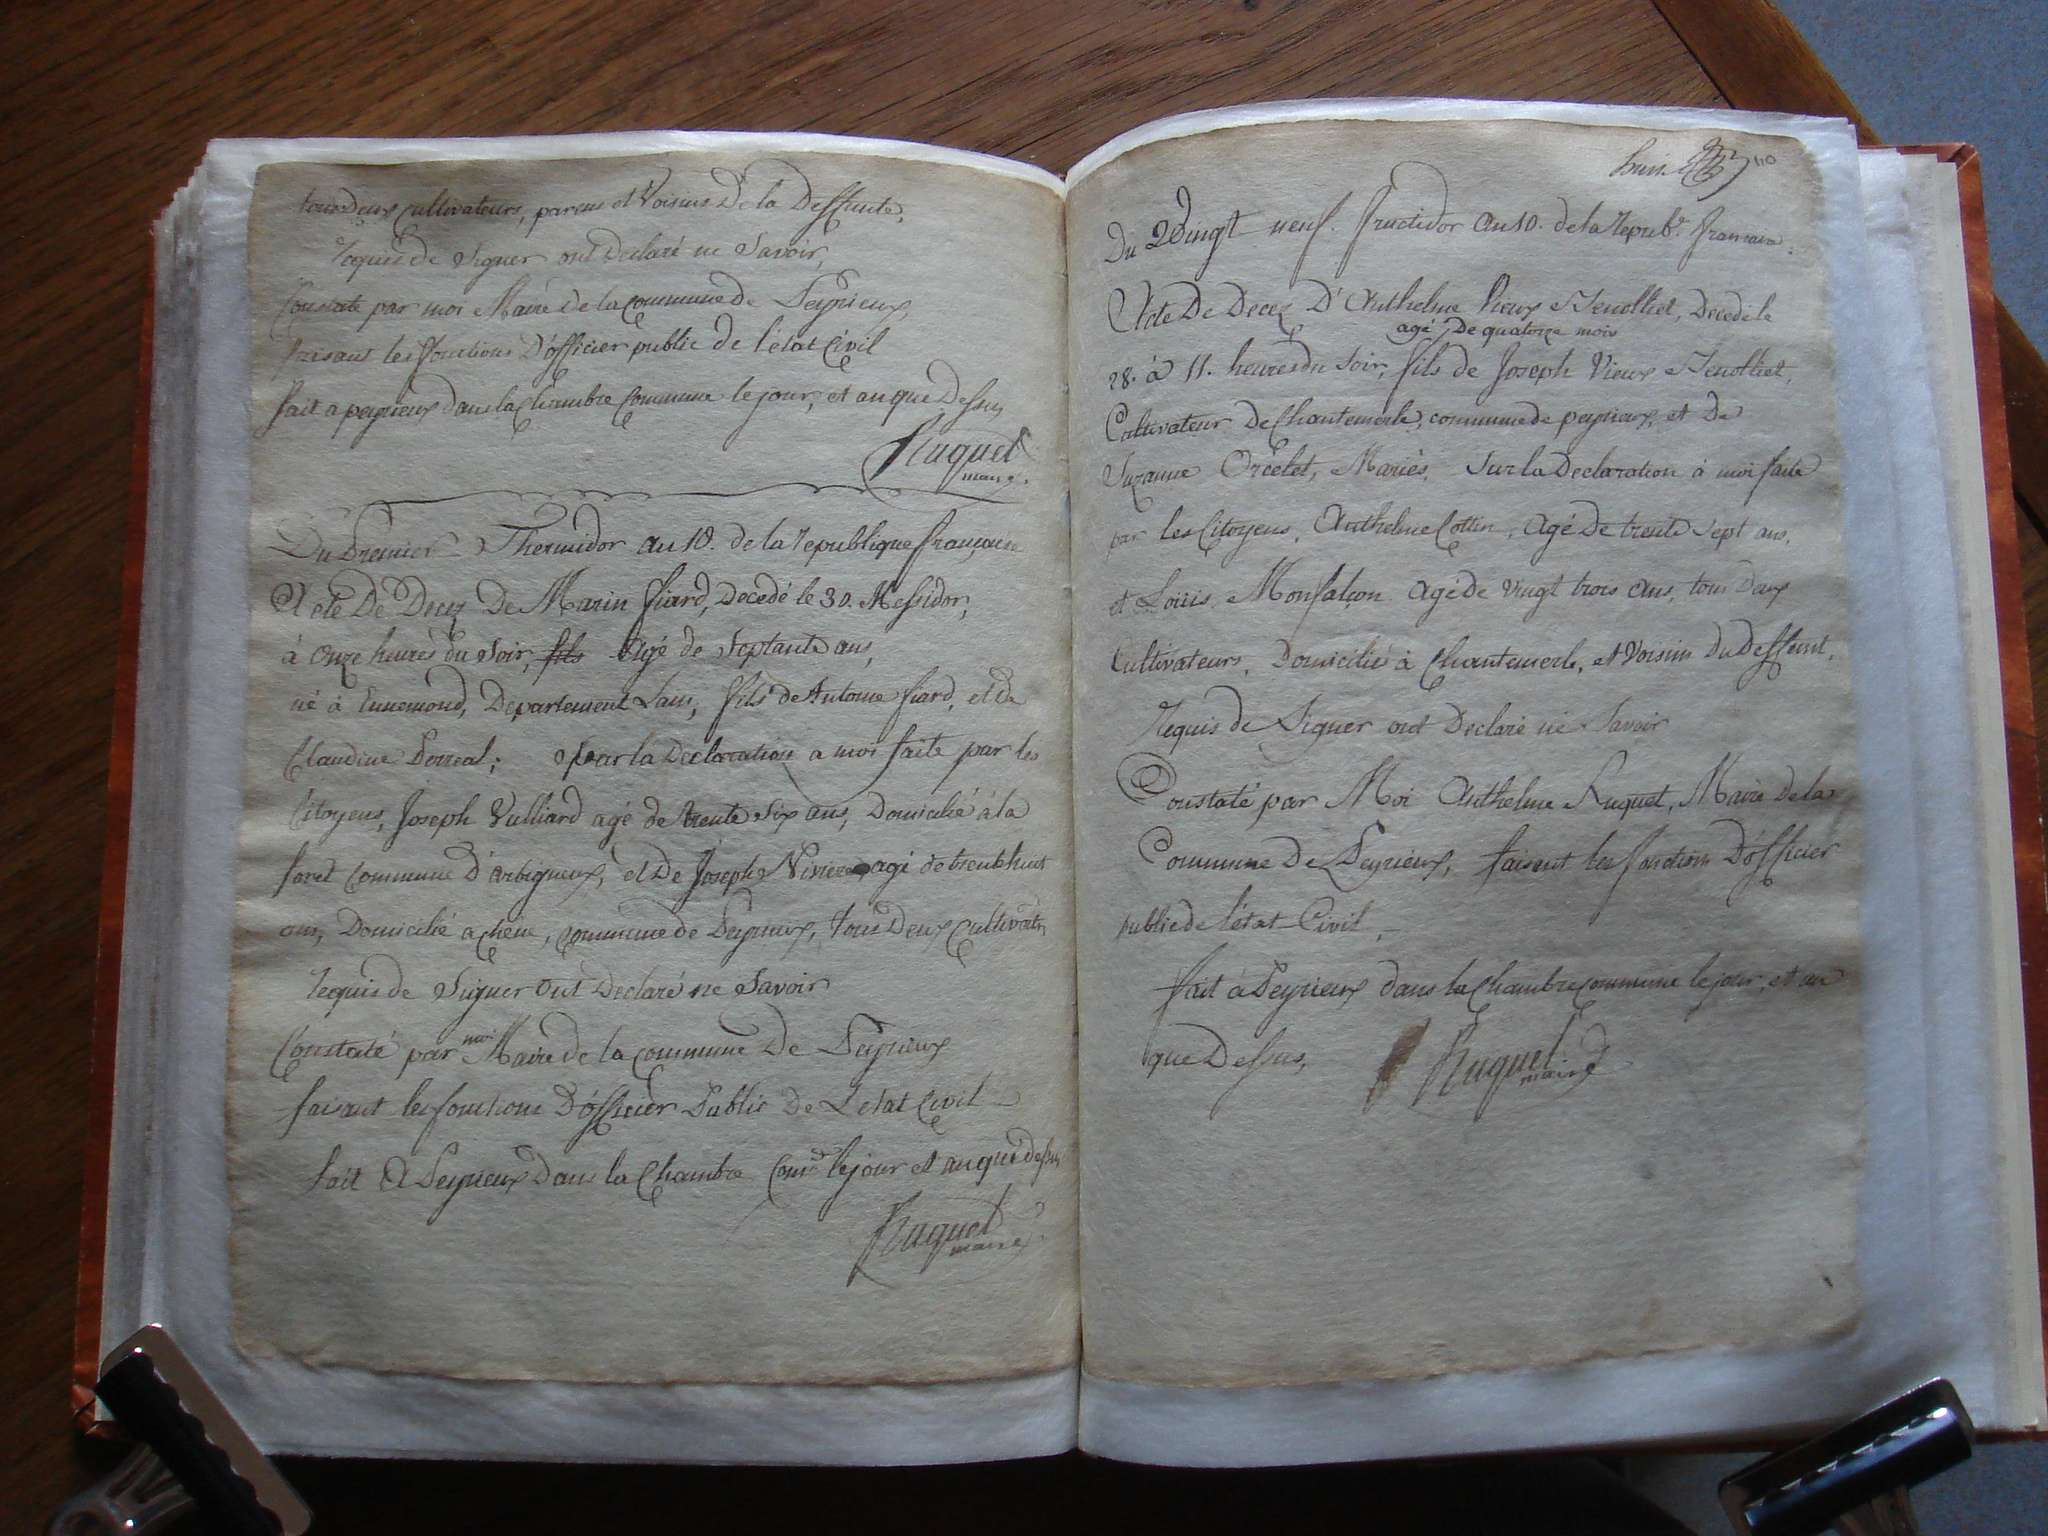 tous deux cultivateurs, parens et Voisins De la Deffunte,
Requis de Signer ont Declaré ne Savoir,
Constaté par moi Maire de la commune de Peyrieux,
faisant les fonctions D'officier public de l'état Civil
fait a peyrieux dans la Chambre Commune le jour, et an que Dessus
Ruquet
maire.
Du Premier Thermidor an 10. de la Republique française
Acte De Decez De Marin fiard, Decedé le 30. Messidor,
à Onze heures du Soir, fils Agé de Septante ans,
né à Ennemond, Departement Lain, fils de Antoine fiard, et De
Claudine Perreal; Sur la Declaration a moi faite par les
Citoyens, Joseph Vulliard agé de trente Six ans, Domicilié à la
foret Commune D'arbigneux, et De Joseph agé de trente huit
ans, Domicilié a chêne, commune de Peyrieux, tous Deux Cultivatrs
Requis de Signer Ont Declaré ne Savoir
Constaté par moi Maire de la commune De Peyrieux
faisant les fonctions D'officier Public De L'etat Civil
fait A Peyrieux Dans la Chambre Comne le jour et an que dessus
Ruquet
maire
110
Du Vingt neuf. fructidor an 10. de la Repube. francaise.
Acte De Decez D'Anthelme Vieux Jenolliet, Decedé le
agé De quatorze mois
28. à 11. heures du Soir, fils de Joseph Vieux Jenolliet,
Cultivateur De Chantemerle, commune de peyrieux, et De
Suzanne Orcelet, Mariés, Sur la Declaration à moi faite
par les Citoyens, Anthelme Cottin, Agé De trente Sept ans,
et Louis Monfalcon agé de Vingt trois ans, tous Deux
Cultivateurs, Domiciliés à Chantemerle, et Voisins Du Deffunt,
Requis de Signer ont Declaré ne Savoir
Constaté par Moi Anthelme Ruquet, Maire de la
Commune De Peyrieux, faisant les fonctions D'officier
public de l'état Civil,
fait à Peyrieux dans la Chambre commune le jour, et an
que Dessus,
Ruquet
maire